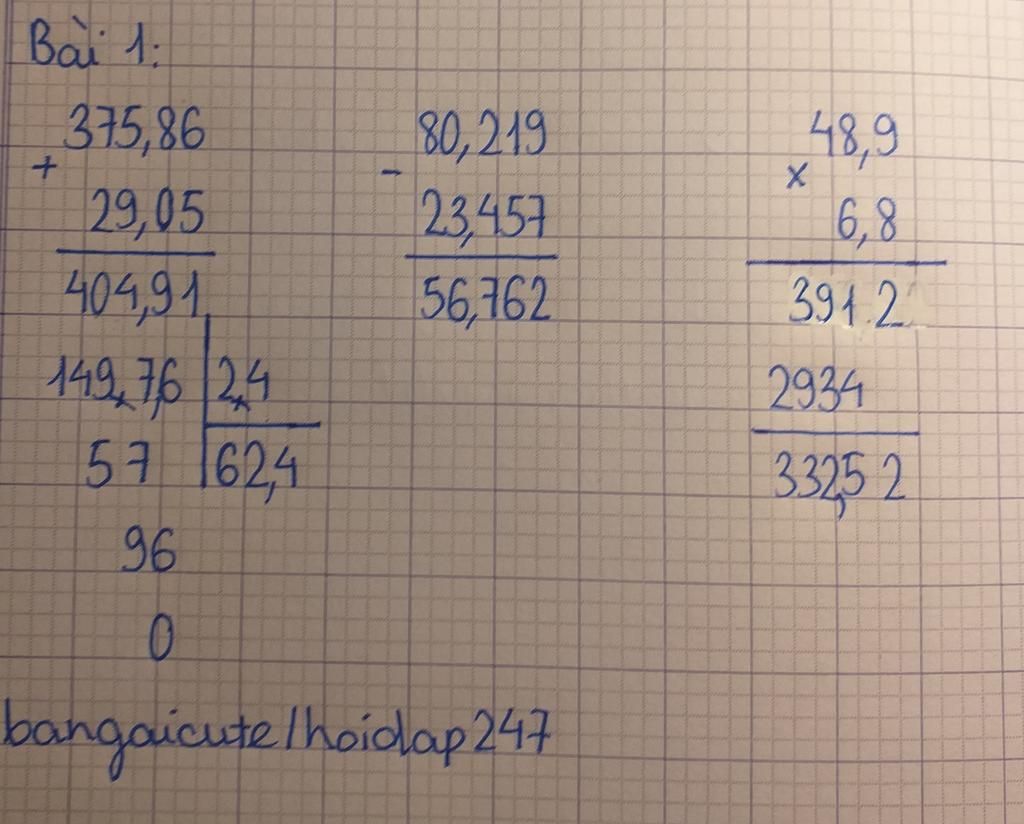 Bài 1:
375,86
+
29,05
404,91
80,219
-
23,457
56,762
48,9
x
6,8
391 2
2934
332,52
149,7,6 2,4
57 62,4
96
0
bangaicute/hoidap247